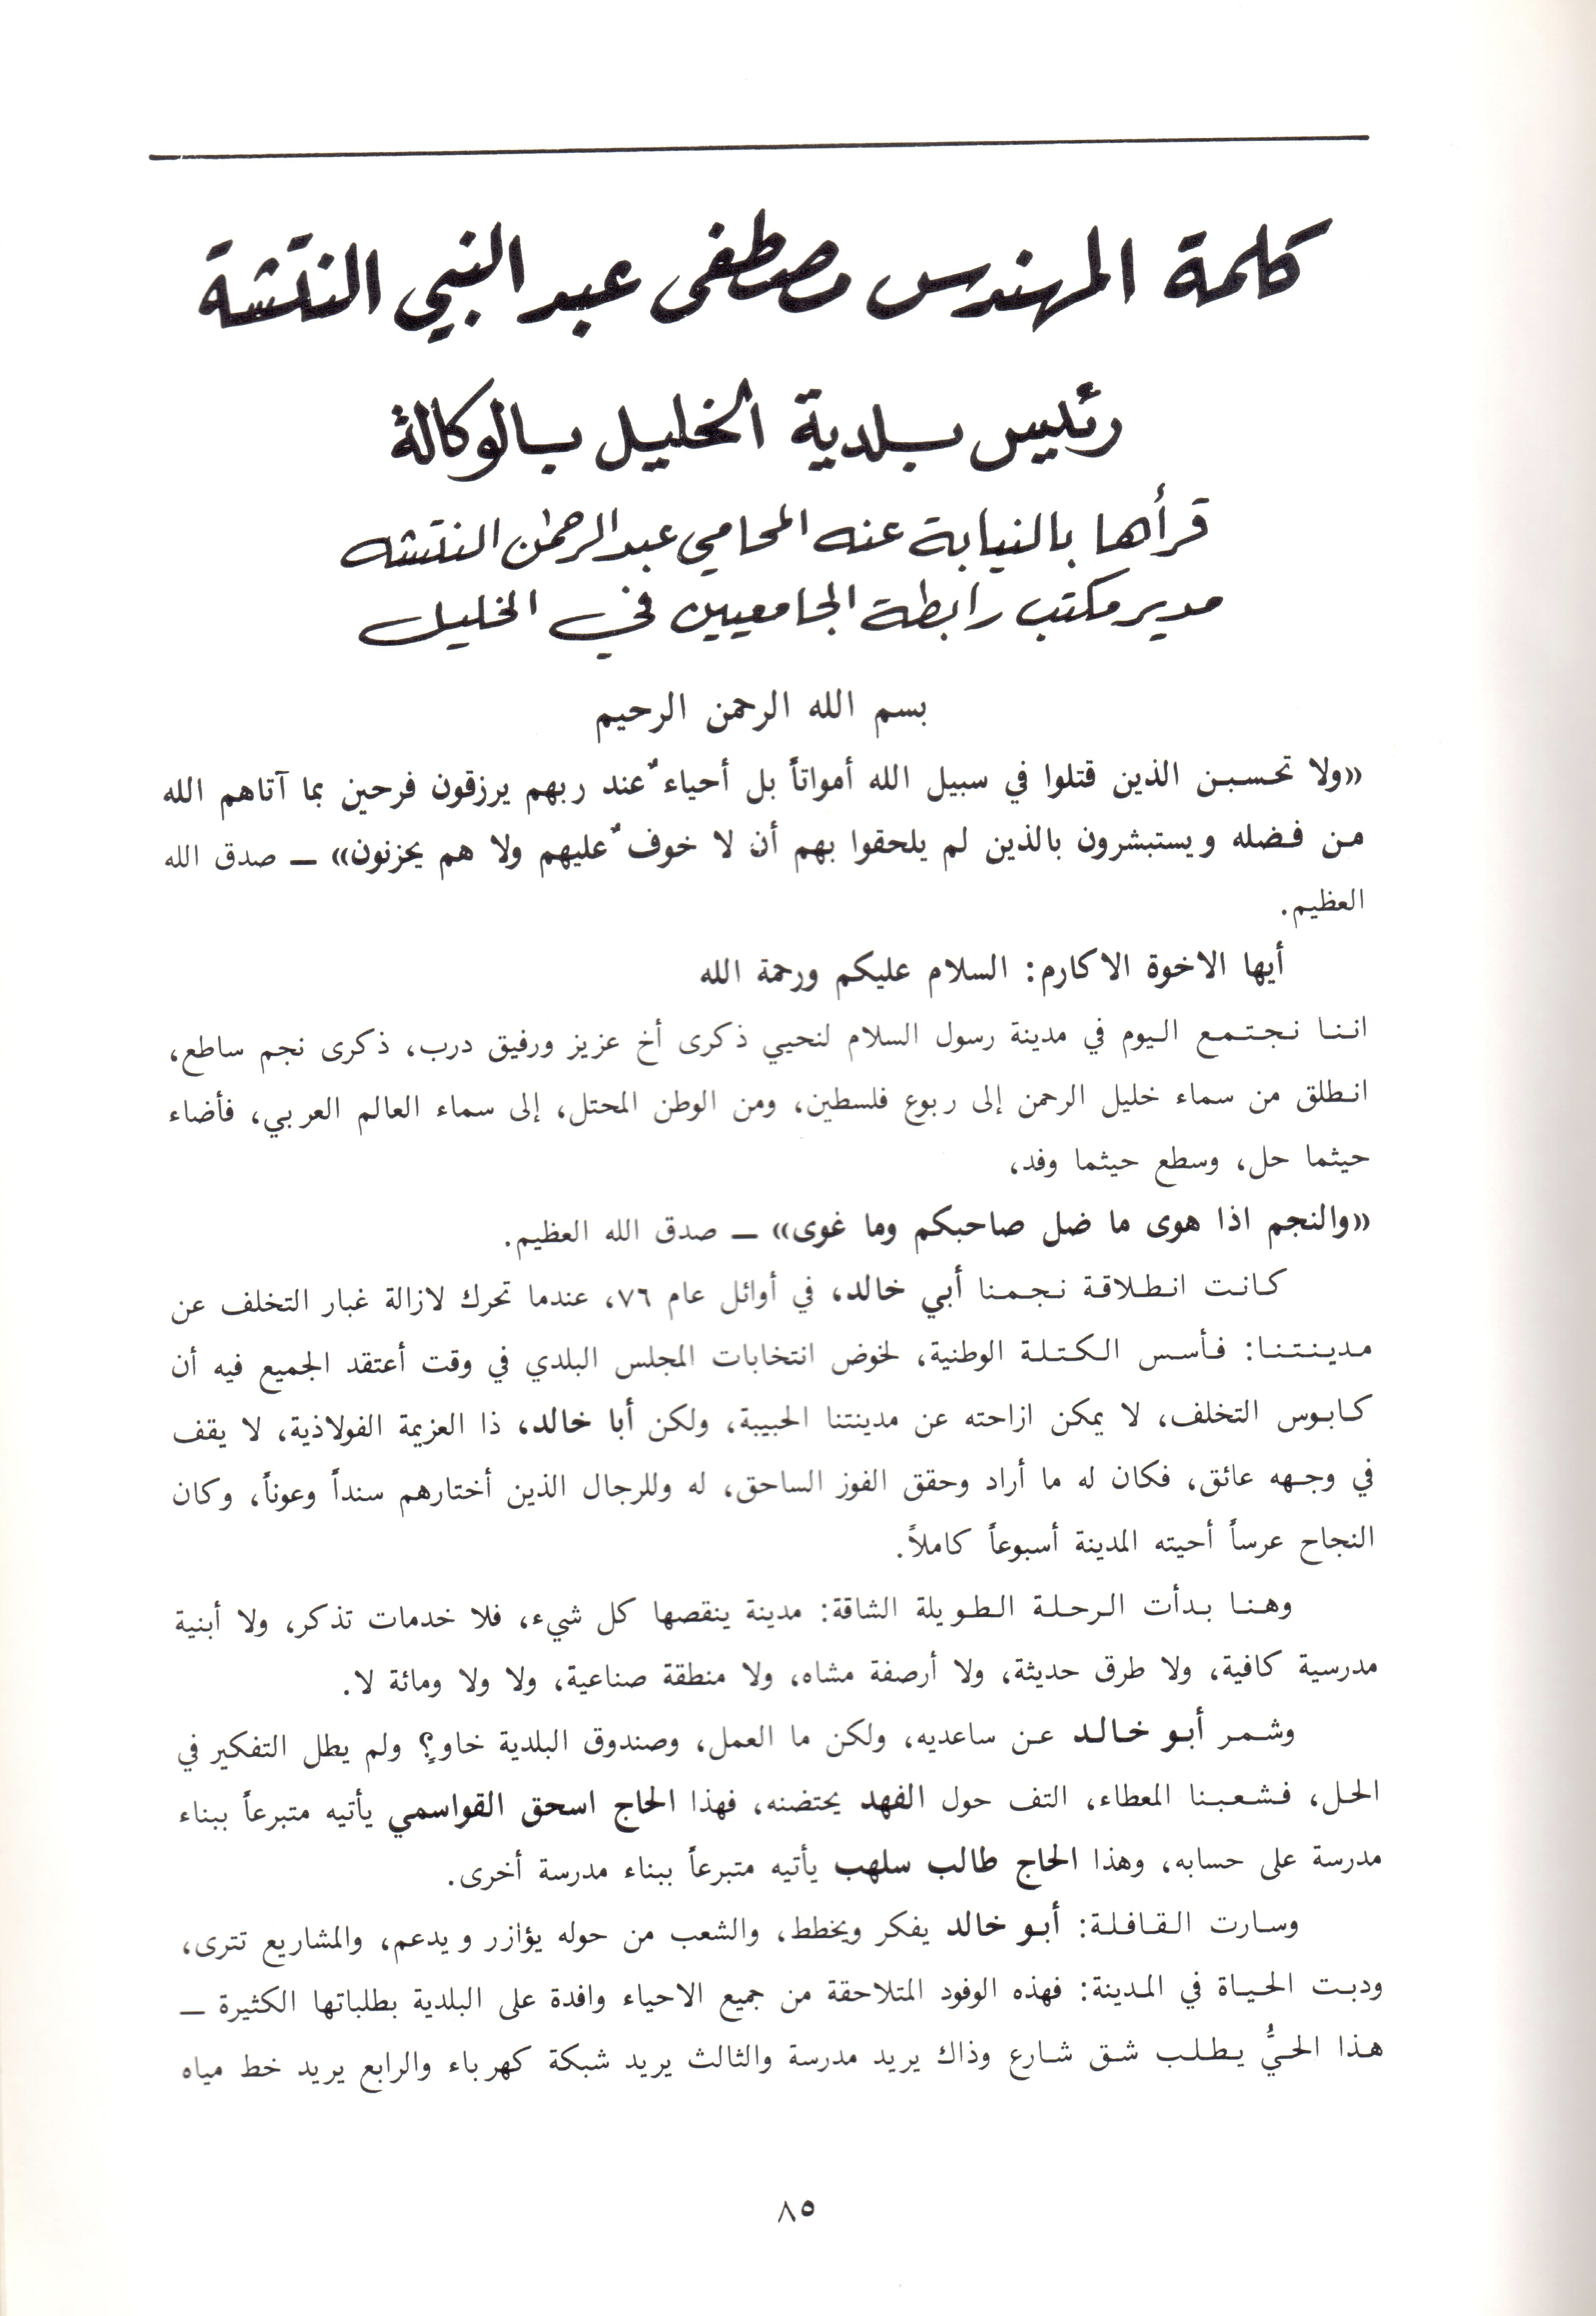 كلمة المهندس مصطفى عبد النبي النتشة
رئيس بلدية الخليل بالوكالة
قرأها بالنيابة عنه المحامي عبدالرحمٰن النتشه
مدير مكتب رابطة الجامعيين في الخليل
بسم الله الرحمن الرحيم
«ولا تحسبن الذين قتلوا في سبيل الله أمواتاً بل أحياءٌ عند ربهم يرزقون فرحين بما آتاهم الله
من فضله ويستبشرون بالذين لم يلحقوا بهم أن لا خوفٌ عليهم ولا هم يحزنون» — صدق الله
العظيم.
أيها الاخوة الاكارم: السلام عليكم ورحمة الله
اننا نجتمع اليوم في مدينة رسول السلام لنحيي ذكرى أخ عزيز ورفيق درب، ذكرى نجم ساطع،
انطلق من سماء خليل الرحمن إلى ربوع فلسطين، ومن الوطن المحتل، إلى سماء العالم العربي، فأضاء
حيثما حل، وسطع حيثما وفد،
«والنجم اذا هوى ما ضل صاحبكم وما غوى» — صدق الله العظيم.
كانت انطلاقة نجمنا أبي خالد، في أوائل عام ٧٦، عندما تحرك لازالة غبار التخلف عن
مدينتنا: فأسس الكتلة الوطنية، لخوض انتخابات المجلس البلدي في وقت أعتقد الجميع فيه أن
كابوس التخلف، لا يمكن ازاحته عن مدينتنا الحبيبة، ولكن أبا خالد، ذا العزيمة الفولاذية، لا يقف
في وجهه عائق، فكان له ما أراد وحقق الفوز الساحق، له وللرجال الذين أختارهم سنداً وعوناً، وكان
النجاح عرساً أحيته المدينة أسبوعاً كاملاً.
وهنا بدأت الرحلة الطويلة الشاقة: مدينة ينقصها كل شيء، فلا خدمات تذكر، ولا أبنية
مدرسية كافية، ولا طرق حديثة، ولا أرصفة مشاه، ولا منطقة صناعية، ولا ولا ومائة لا.
وشمر أبو خالد عن ساعديه، ولكن ما العمل، وصندوق البلدية خاوٍ؟ ولم يطل التفكير في
الحل، فشعبنا المعطاء، التف حول الفهد يحتضنه، فهذا الحاج اسحق القواسمي يأتيه متبرعاً ببناء
مدرسة على حسابه، وهذا الحاج طالب سلهب يأتيه متبرعاً ببناء مدرسة أخرى.
وسارت القافلة: أبو خالد يفكر ويخطط، والشعب من حوله يؤازر ويدعم، والمشاريع تترى،
ودبت الحياة في المدينة: فهذه الوفود المتلاحقة من جميع الاحياء وافدة على البلدية بطلباتها الكثيرة —
هذا الحيُّ يطلب شق شارع وذاك يريد مدرسة والثالث يريد شبكة كهرباء والرابع يريد خط مياه
٨٥